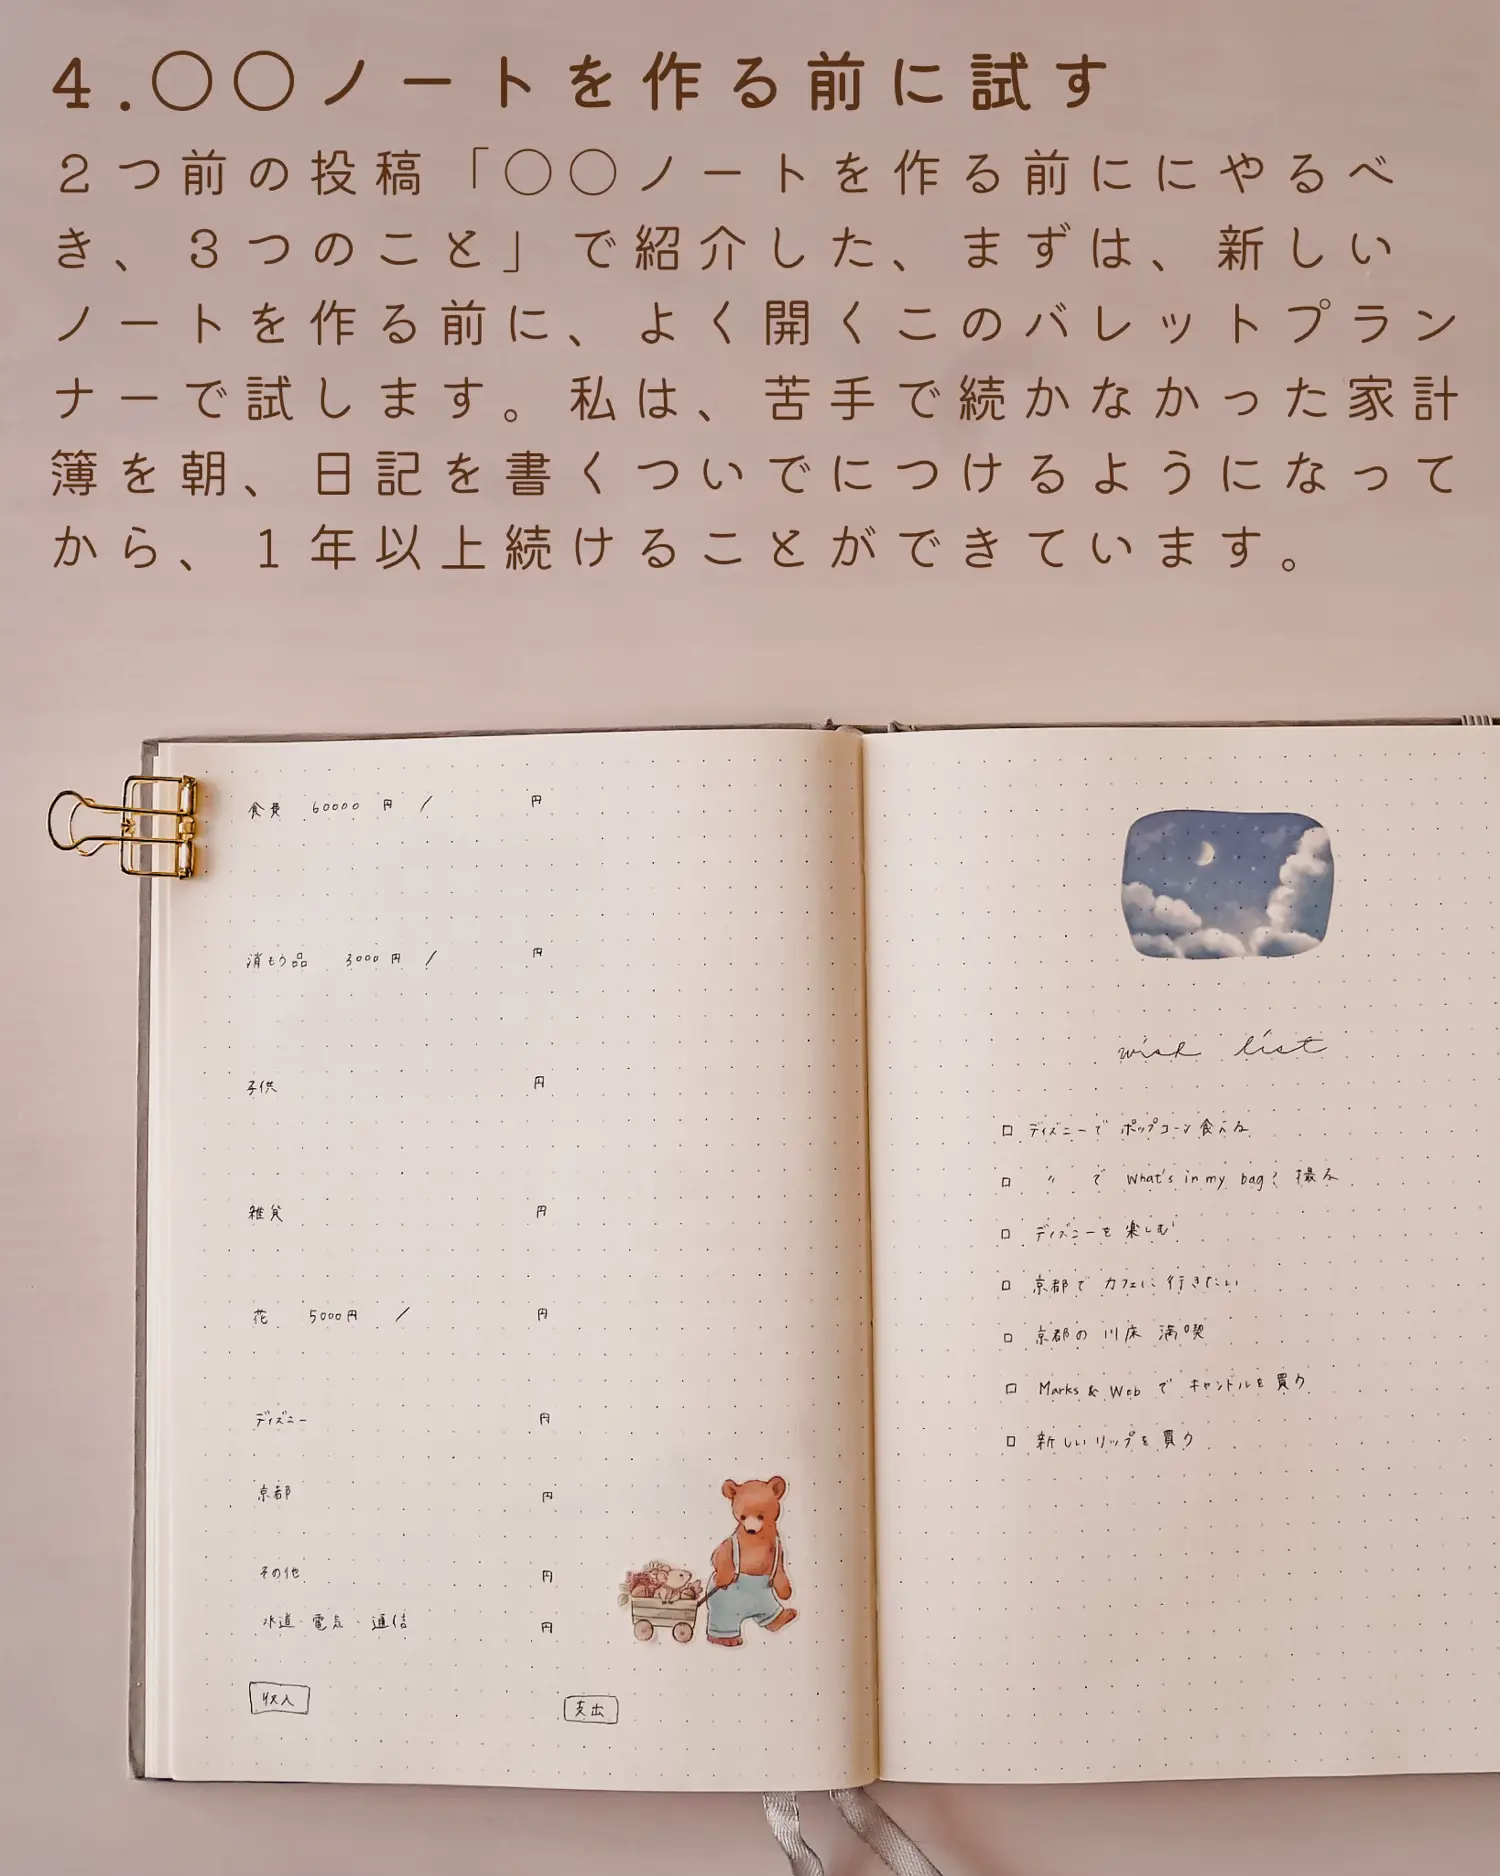 4.○○ノートを作る前に試す
2つ前の投稿「○○ノートを作る前ににやるべ
き、3つのこと」で紹介した、まずは、新しい
ノートを作る前に、よく開くこのバレットプラン
ナーで試します。私は、苦手で続かなかった家計
簿を朝、日記を書くついでにつけるようになって
から、1年以上続けることができています。
食費 60000 円 / 円
消もう品 3000 円 / 円
子供 円
雑貨 円
花 5000円 / 円
ディズニー 円
京都 円
その他 円
水道・電気・通信 円
収入 支出
wish list
□ ディズニーで ポップコーン食べる
□ 〃 で What's in my bag? 撮る
□ ディズニーを楽しむ
□ 京都で カフェに行きたい
□ 京都の 川床 満喫
□ Marks & Web で キャンドルを買う
□ 新しいリップを買う